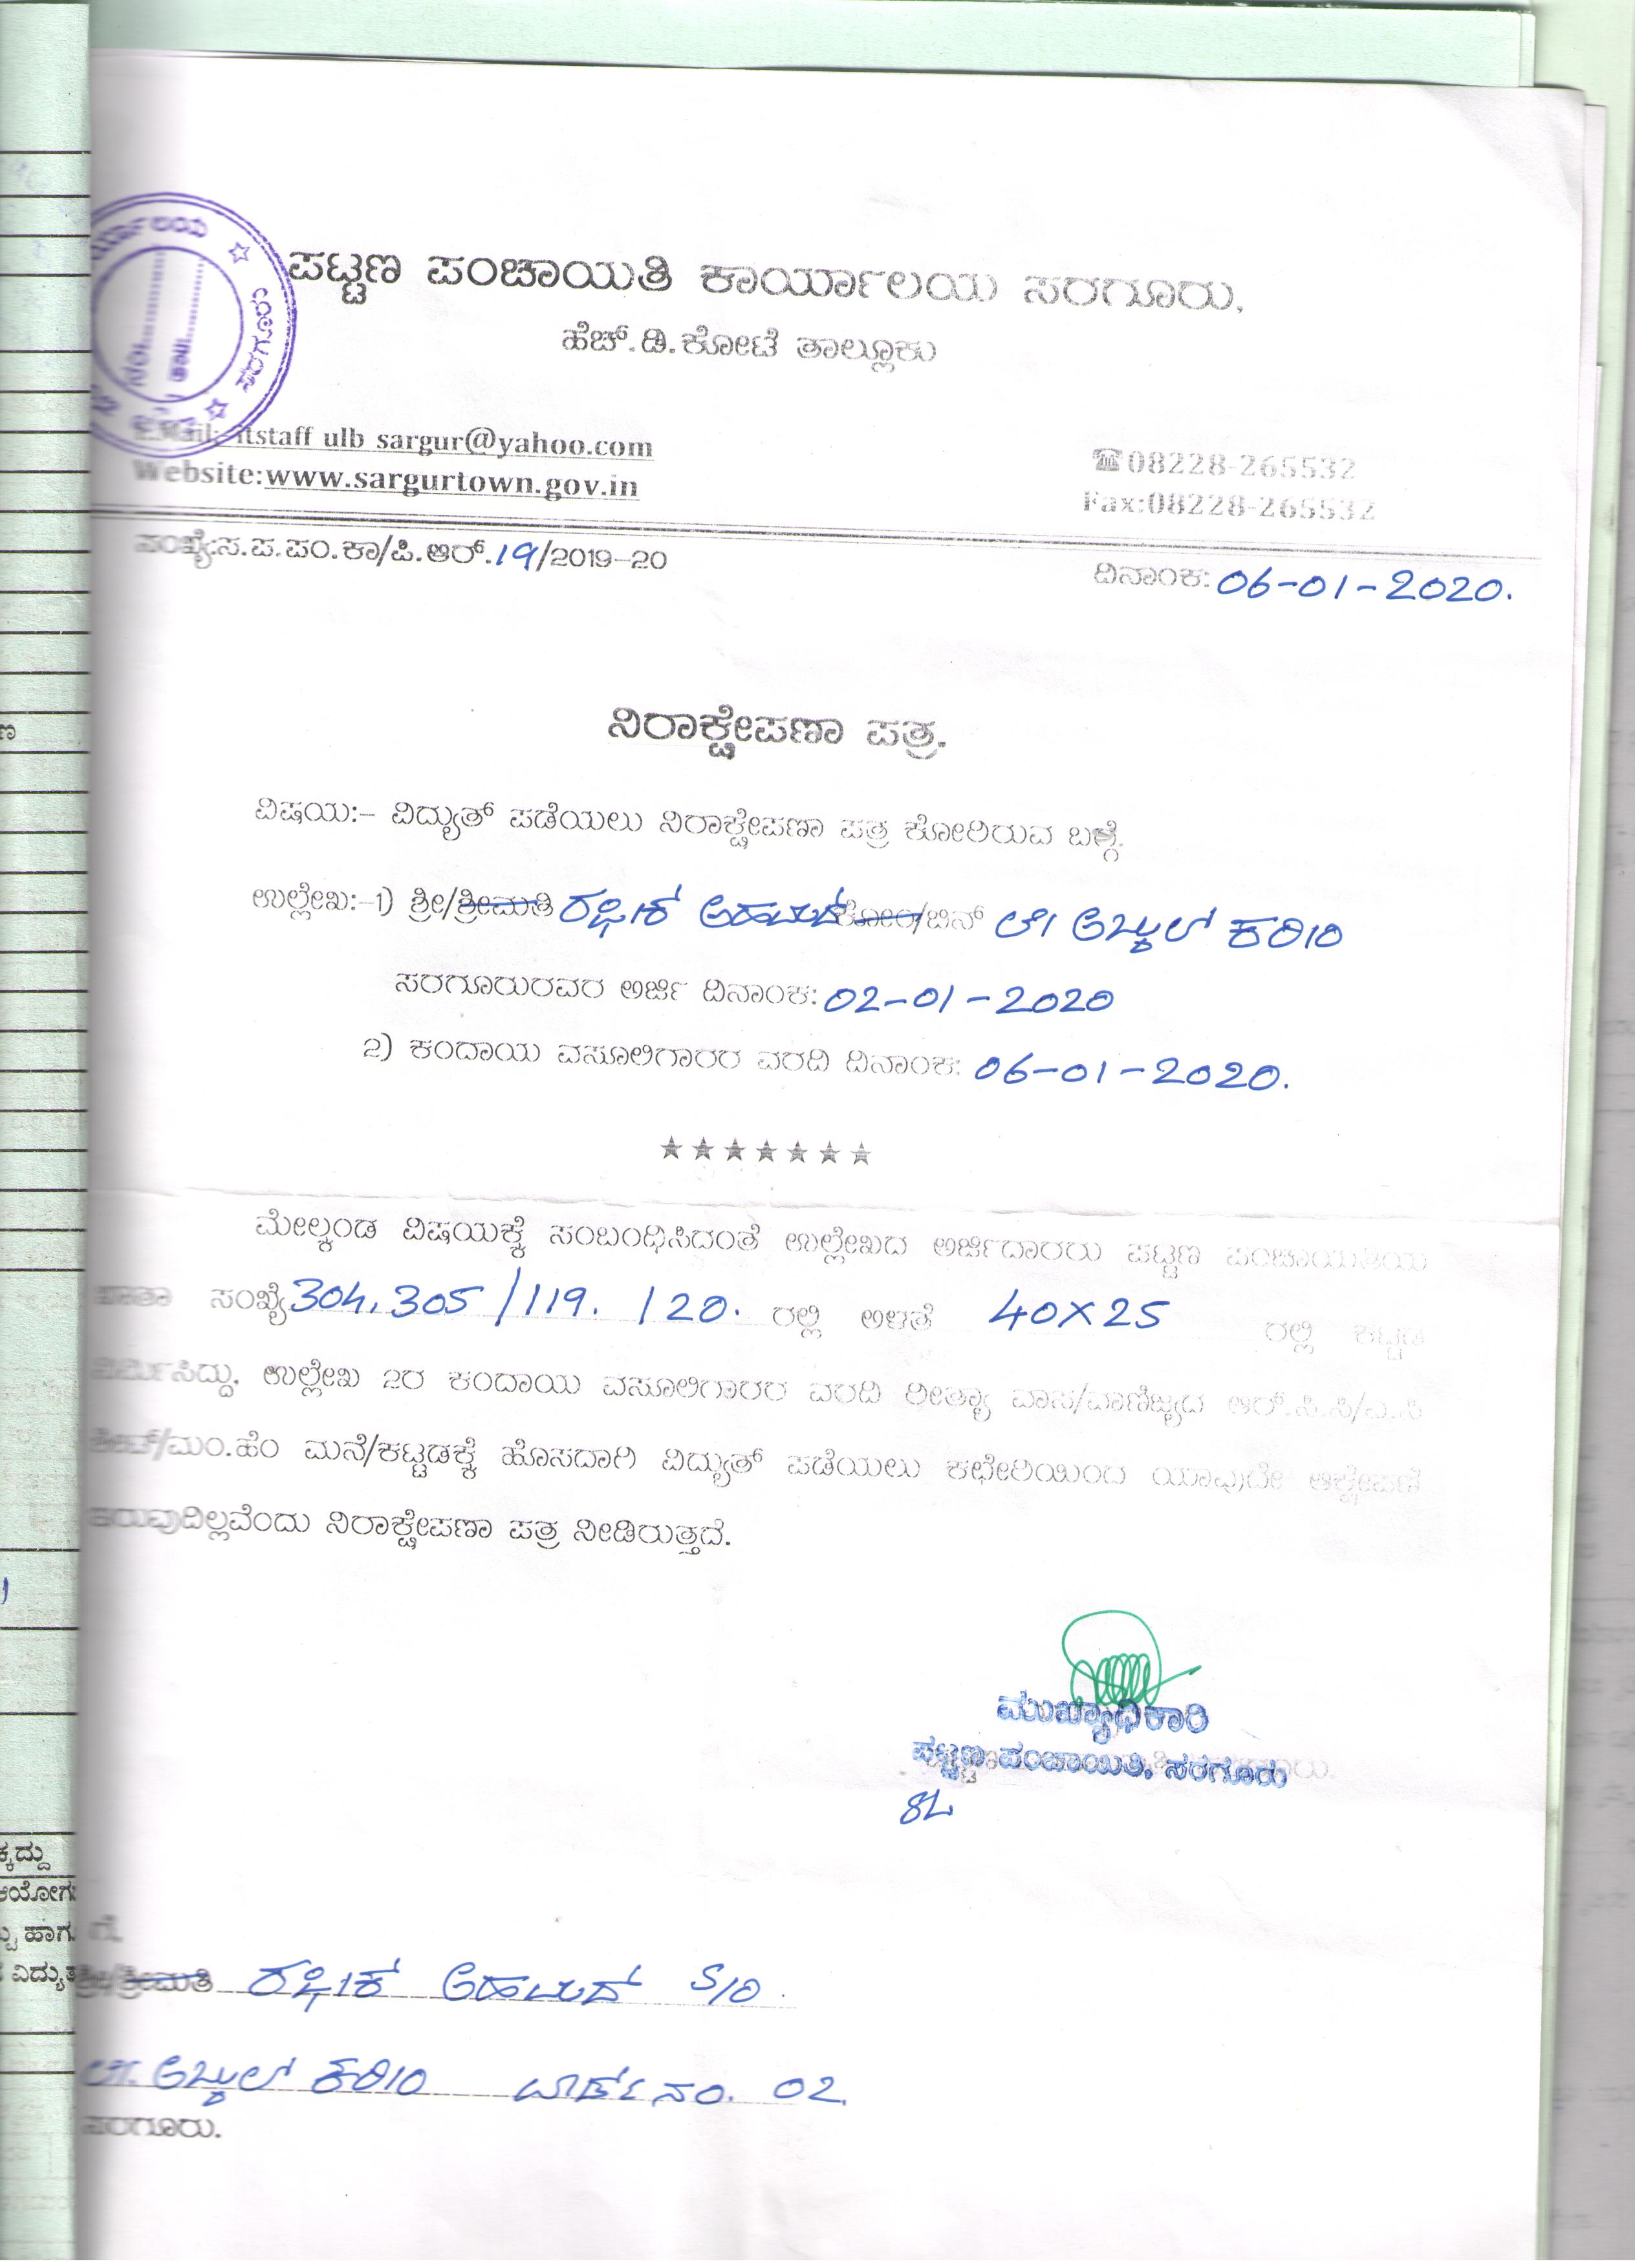 ಪಟ್ಟಣ ಪಂಚಾಯತಿ ಕಾರ್ಯಾಲಯ ಸರಗೂರು,
ಹೆಚ್.ಡಿ.ಕೋಟೆ ತಾಲ್ಲೂಕು
E.Mail: itstaff ulb sargur@yahoo.com
☎08228-265532
Website:www.sargurtown.gov.in
Fax:08228-265532
ಸಂಖ್ಯೆ:ಸ.ಪ.ಪಂ.ಕಾ/ಪಿ.ಆರ್.19/2019-20
ದಿನಾಂಕ: 06-01-2020.
ನಿರಾಕ್ಷೇಪಣಾ ಪತ್ರ.
ವಿಷಯ:- ವಿದ್ಯುತ್ ಪಡೆಯಲು ನಿರಾಕ್ಷೇಪಣಾ ಪತ್ರ ಕೋರಿರುವ ಬಗ್ಗೆ.
ಉಲ್ಲೇಖ:-1) ಶ್ರೀ/ಶ್ರೀಮತಿ ರಫೀಕ್ ಅಹಮದ್ ಕೋಂ/ಬಿನ್ ಲೇ ಅಬ್ದುಲ್ ಕರೀಂ
ಸರಗೂರುರವರ ಅರ್ಜಿ ದಿನಾಂಕ: 02-01-2020
2) ಕಂದಾಯ ವಸೂಲಿಗಾರರ ವರದಿ ದಿನಾಂಕ: 06-01-2020.
★★★★★★★
ಮೇಲ್ಕಂಡ ವಿಷಯಕ್ಕೆ ಸಂಬಂಧಿಸಿದಂತೆ ಉಲ್ಲೇಖದ ಅರ್ಜಿದಾರರು ಪಟ್ಟಣ ಪಂಚಾಯತಿಯ
ಖಾತಾ ಸಂಖ್ಯೆ 304,305/119./20. ರಲ್ಲಿ ಅಳತೆ 40X25 ರಲ್ಲಿ ಕಟ್ಟಡ
ನಿರ್ಮಿಸಿದ್ದು, ಉಲ್ಲೇಖ 2ರ ಕಂದಾಯ ವಸೂಲಿಗಾರರ ವರದಿ ರೀತ್ಯಾ ವಾಸ/ವಾಣಿಜ್ಯದ ಆರ್.ಸಿ.ಸಿ/ಎ.ಸಿ
ಶೀಟ್/ಮಂ.ಹೆಂ ಮನೆ/ಕಟ್ಟಡಕ್ಕೆ ಹೊಸದಾಗಿ ವಿದ್ಯುತ್ ಪಡೆಯಲು ಕಛೇರಿಯಿಂದ ಯಾವುದೇ ಆಕ್ಷೇಪಣೆ
ಇರುವುದಿಲ್ಲವೆಂದು ನಿರಾಕ್ಷೇಪಣಾ ಪತ್ರ ನೀಡಿರುತ್ತದೆ.
ಮುಖ್ಯಾಧಿಕಾರಿ
ಪಟ್ಟಣ ಪಂಚಾಯಿತಿ, ಸರಗೂರು
ಗೆ,
ಶ್ರೀ/ಶ್ರೀಮತಿ ರಫೀಕ್ ಅಹಮದ್ S/O.
ಲೇ. ಅಬ್ದುಲ್ ಕರೀಂ ವಾರ್ಡ್ ನಂ. 02
ಸರಗೂರು.